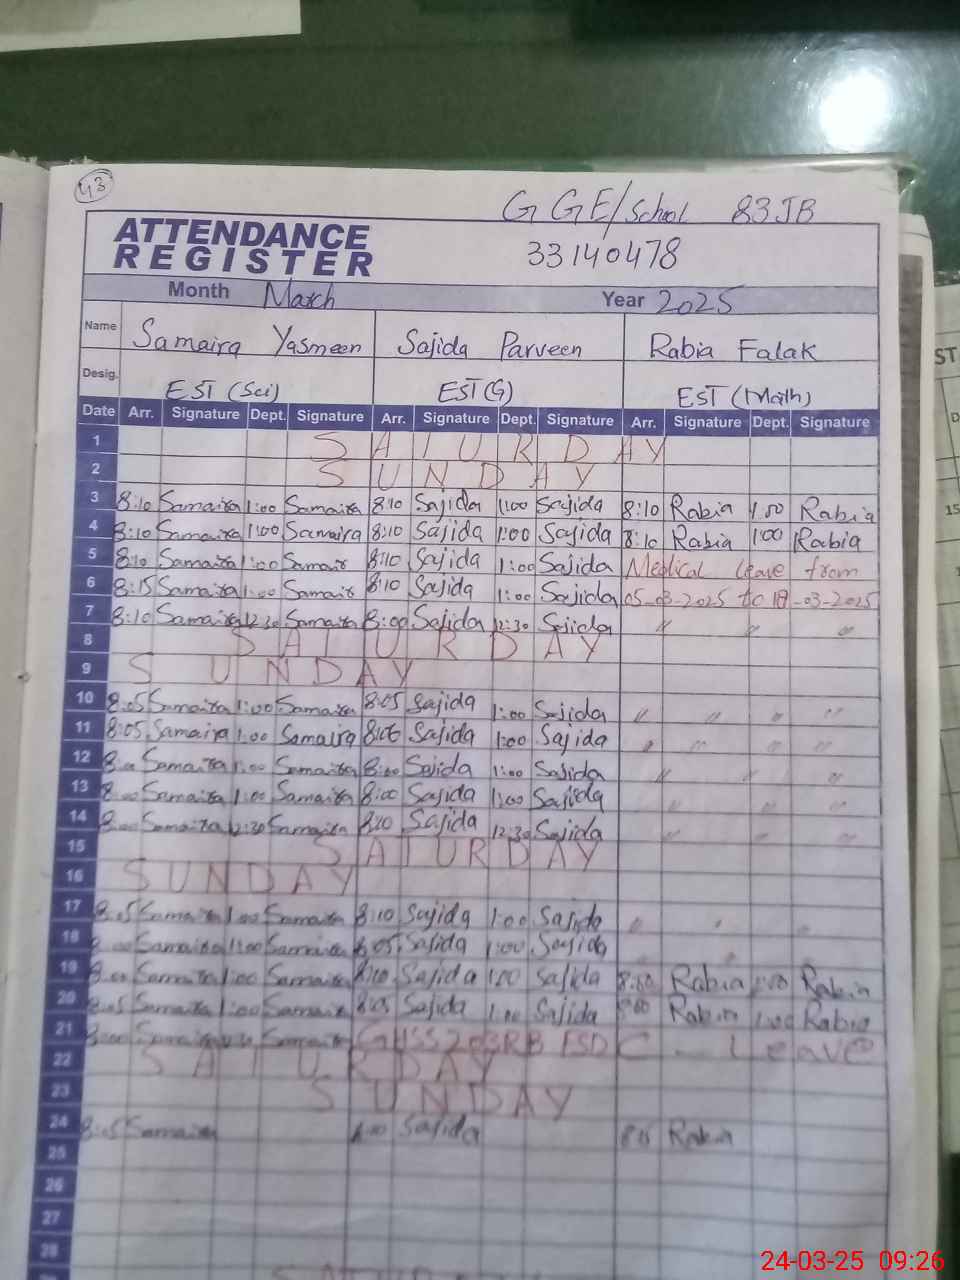 43
G GE/School 83JB
ATTENDANCE
REGISTER
33140478
Month March Year 2025
Name Samaira Yasmeen Sajida Parveen Rabia Falak
Desig. EST (Sci) EST (G) EST (Math)
Date Arr. Signature Dept. Signature Arr. Signature Dept. Signature Arr. Signature Dept. Signature
1 SATURDAY
2 SUNDAY
3 8:10 Samaira 1:00 Samaira 8:10 Sajida 1:00 Sajida 8:10 Rabia 1:00 Rabia
4 8:10 Samaira 1:00 Samaira 8:10 Sajida 1:00 Sajida 8:10 Rabia 1:00 Rabia
5 8:10 Samaira 1:00 Samair 8:10 Sajida 1:00 Sajida Medical leave from
6 8:15 Samaira 1:00 Samair 8:10 Sajida 1:00 Sajida 05-03-2025 to -03-2025
7 8:10 Samaira 12:30 Samaira 8:00 Sajida 12:30 Sajida " " "
8 SATURDAY
9 SUNDAY
10 8:05 Samaira 1:00 Samaira 8:05 Sajida 1:00 Sajida " " " "
11 8:05 Samaira 1:00 Samaira Sajida 1:00 Sajida " " " "
12 8:00 Samaira 1:00 Samaira 8:00 Sajida 1:00 Sajida " " "
13 8:00 Samaira 1:00 Samaira 8:00 Sajida 1:00 Sajida " " "
14 8:00 Samaira 12:30 Samaira 8:10 Sajida 12:30 Sajida " " "
15 SATURDAY
16 SUNDAY
17 8:05 Samaira 1:00 Samaira 8:10 Sajida 1:00 Sajida " " "
18 8:00 Samaira 1:00 Samaira 8:05 Sajida 1:00 Sajida
19 8:00 Samaira 1:00 Samaira 8:10 Sajida 1:00 Sajida Rabia 1:00 Rabia
20 8:05 Samaira 1:00 Samair 8:05 Sajida 1:00 Sajida 8:00 Rabia 1:00 Rabia
21 8:00 Samaira Samaira GHSS 203RB FSD C - Leave
22 SATURDAY
23 SUNDAY
24 8:05 Samaira Sajida Rabia
25
26
27
28
ST
15
24-03-25 09:26